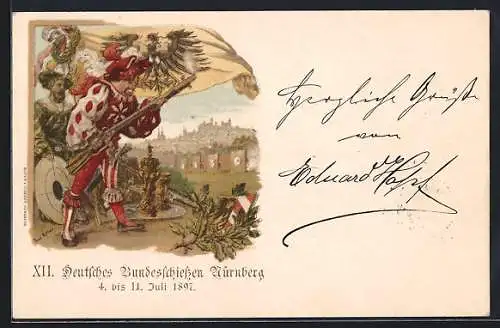 XII. Deutsches Bundesschießen Nürnberg
4. bis 11. Juli 1897.
Herzliche Grüße
von
Eduard